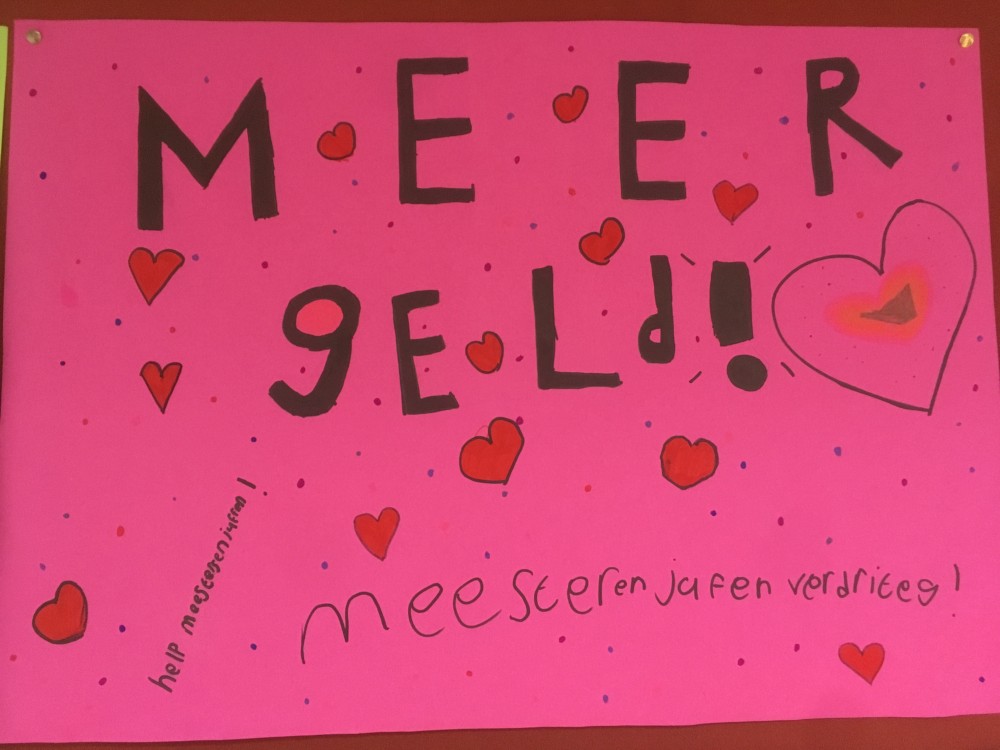 MEER
gELd!
help meesterenjuffen!
meesteren jufen verdriteg!